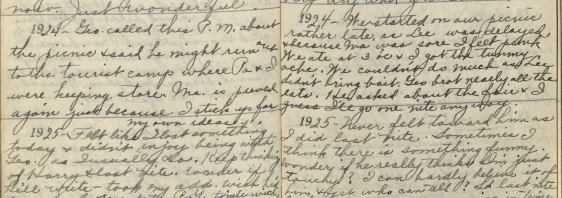 now. Just wonderful.
1924 - Geo. called this P.M. about
the picnic & said he might run out
to the tourist camp where Pa & I
were keeping store. Ma. is peeved
again just because I stick up for
my own ideas!
1925 - Felt like I lost something
today & didn't enjoy being with
Geo. as I usually do. Keep thinking
of Harry & last nite. Wonder if
will write - took my add. wish
1924 - We started on our picnic
rather late, as Lee was delayed
& because Ma was sore I felt punk
We ate at 3 oc & I got the tummy
ache. We couldn't do much as
didn't bring bait. Geo brot nearly all the
eats. He asked about the fair & I
guess I'll go one nite anyway.
1925 - Never felt toward him as
I did last nite. Sometimes I
think there is something funny.
wonder if he really thinks I'm just
touchy? I can hardly believe it of
him, & yet who can all? Sd last nite